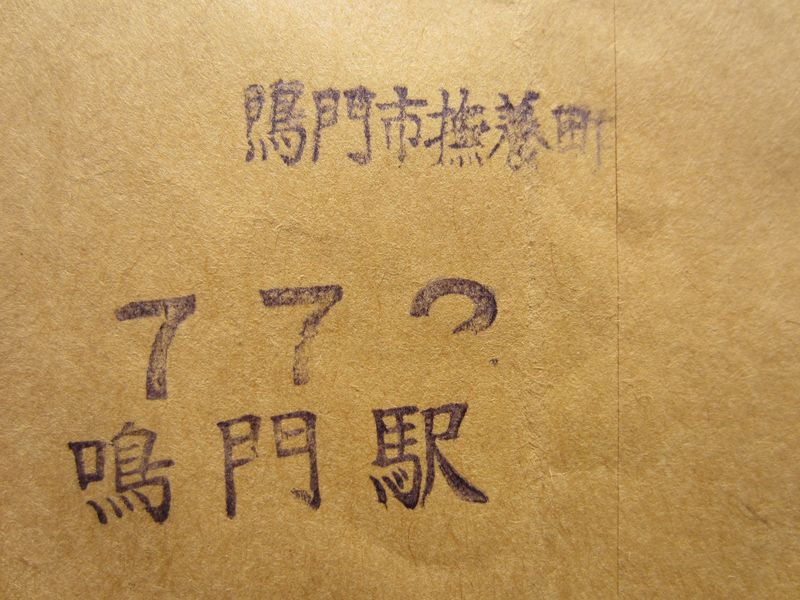 鳴門市撫養町
772
鳴門駅